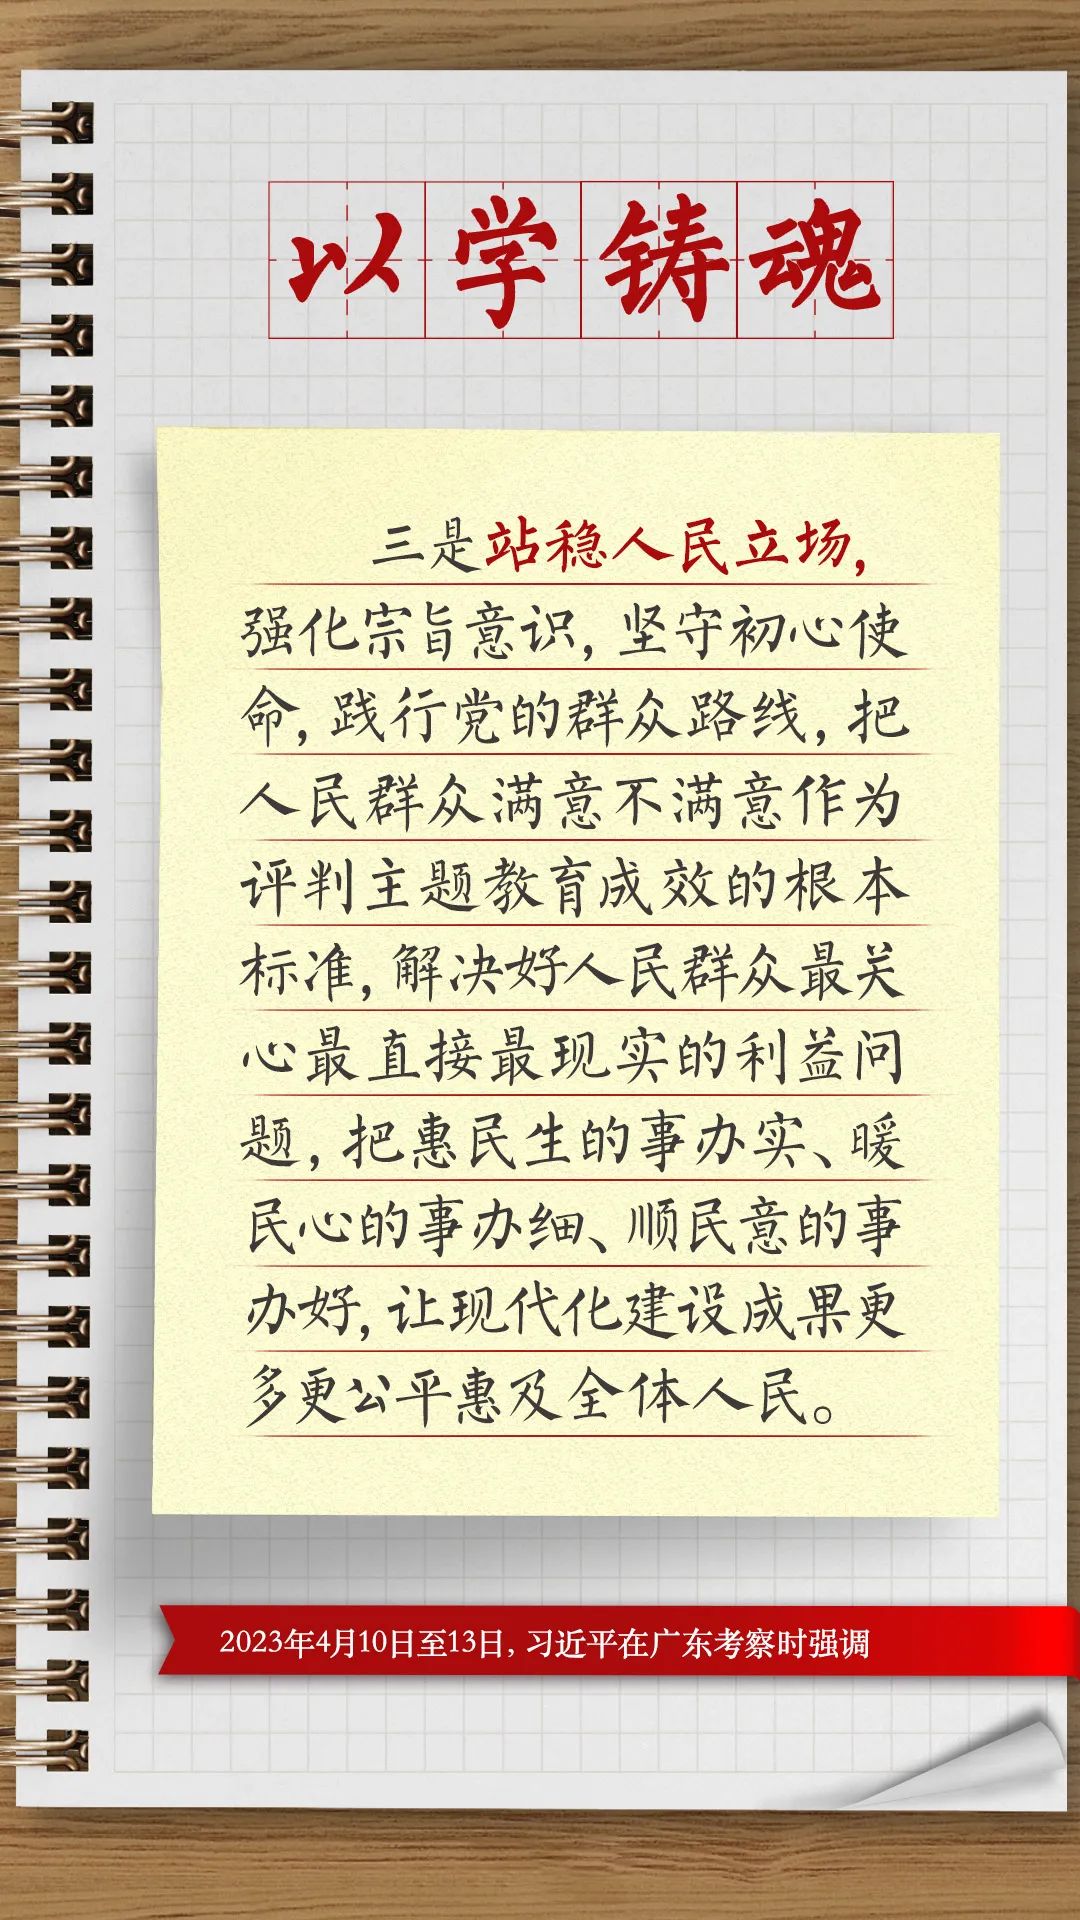 以学铸魂
三是站稳人民立场，
强化宗旨意识，坚守初心使
命，践行党的群众路线，把
人民群众满意不满意作为
评判主题教育成效的根本
标准，解决好人民群众最关
心最直接最现实的利益问
题，把惠民生的事办实、暖
民心的事办细、顺民意的事
办好，让现代化建设成果更
多更公平惠及全体人民。
2023年4月10日至13日，习近平在广东考察时强调